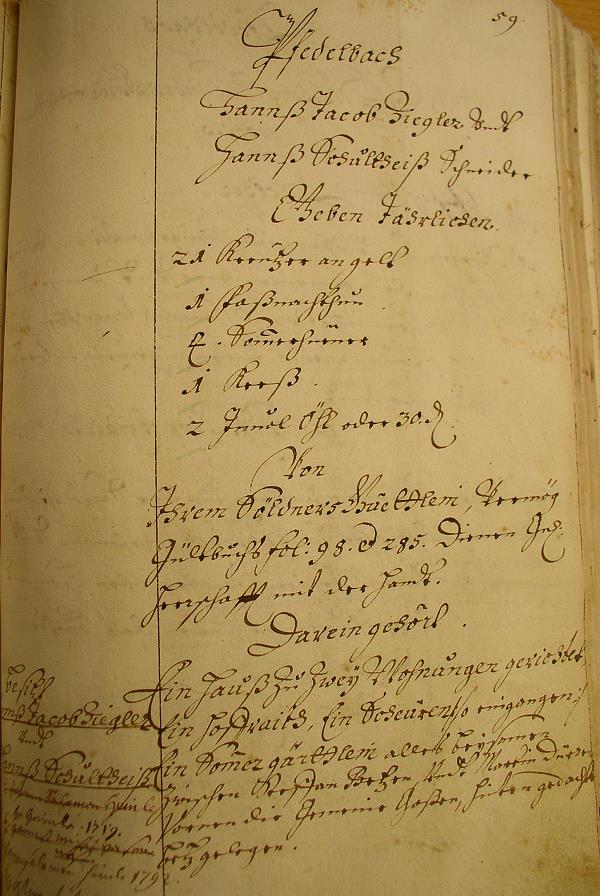 59.
Pfedelbach
Hannß Jacob Ziegler Undt
Hannß Schultheiß Schneider
Geben Jährlichen
21 Kreützer angelt
1 Faßnachthun
4. Som̄erhüner
1 Keeß.
2 öhl oder 30. d
Von
Ihrem Söldners Güetthlein, Vermög
Gültbuchs fol: 98. et 285. Dienen Gn:
Herrschafft mit der Handt.
Darein gehört.
Ein Hauß Zu Zwey Wohnungen gerichtet
Ein Hoffraith, Ein Scheüren /so eingangen:/
Ein Som̄er gärthlein alles beysamen
Zwischen Steffan Undt Martin
Vornen die Gemeine Gaßen, Hinten gedachter
gelegen.
besitzt
Jacob Ziegler
Undt
Schultheiß
1719.